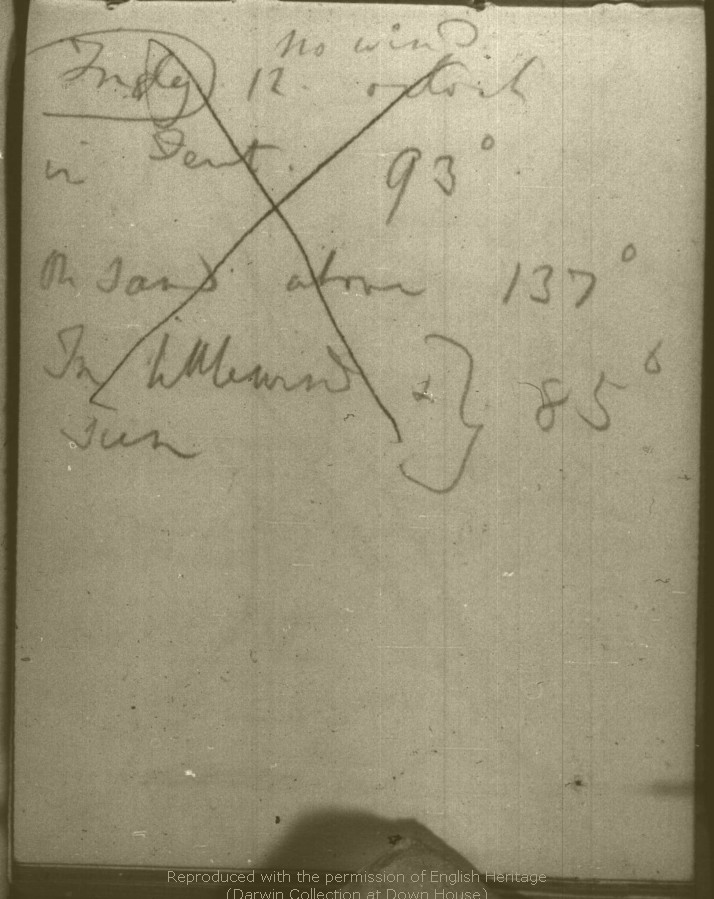 no wind
Friday 12 oclock
in Tent. 93°
On sand above 137°
In little wind & } 85°
sun
Reproduced with the permission of English Heritage
(Darwin Collection at Down House)